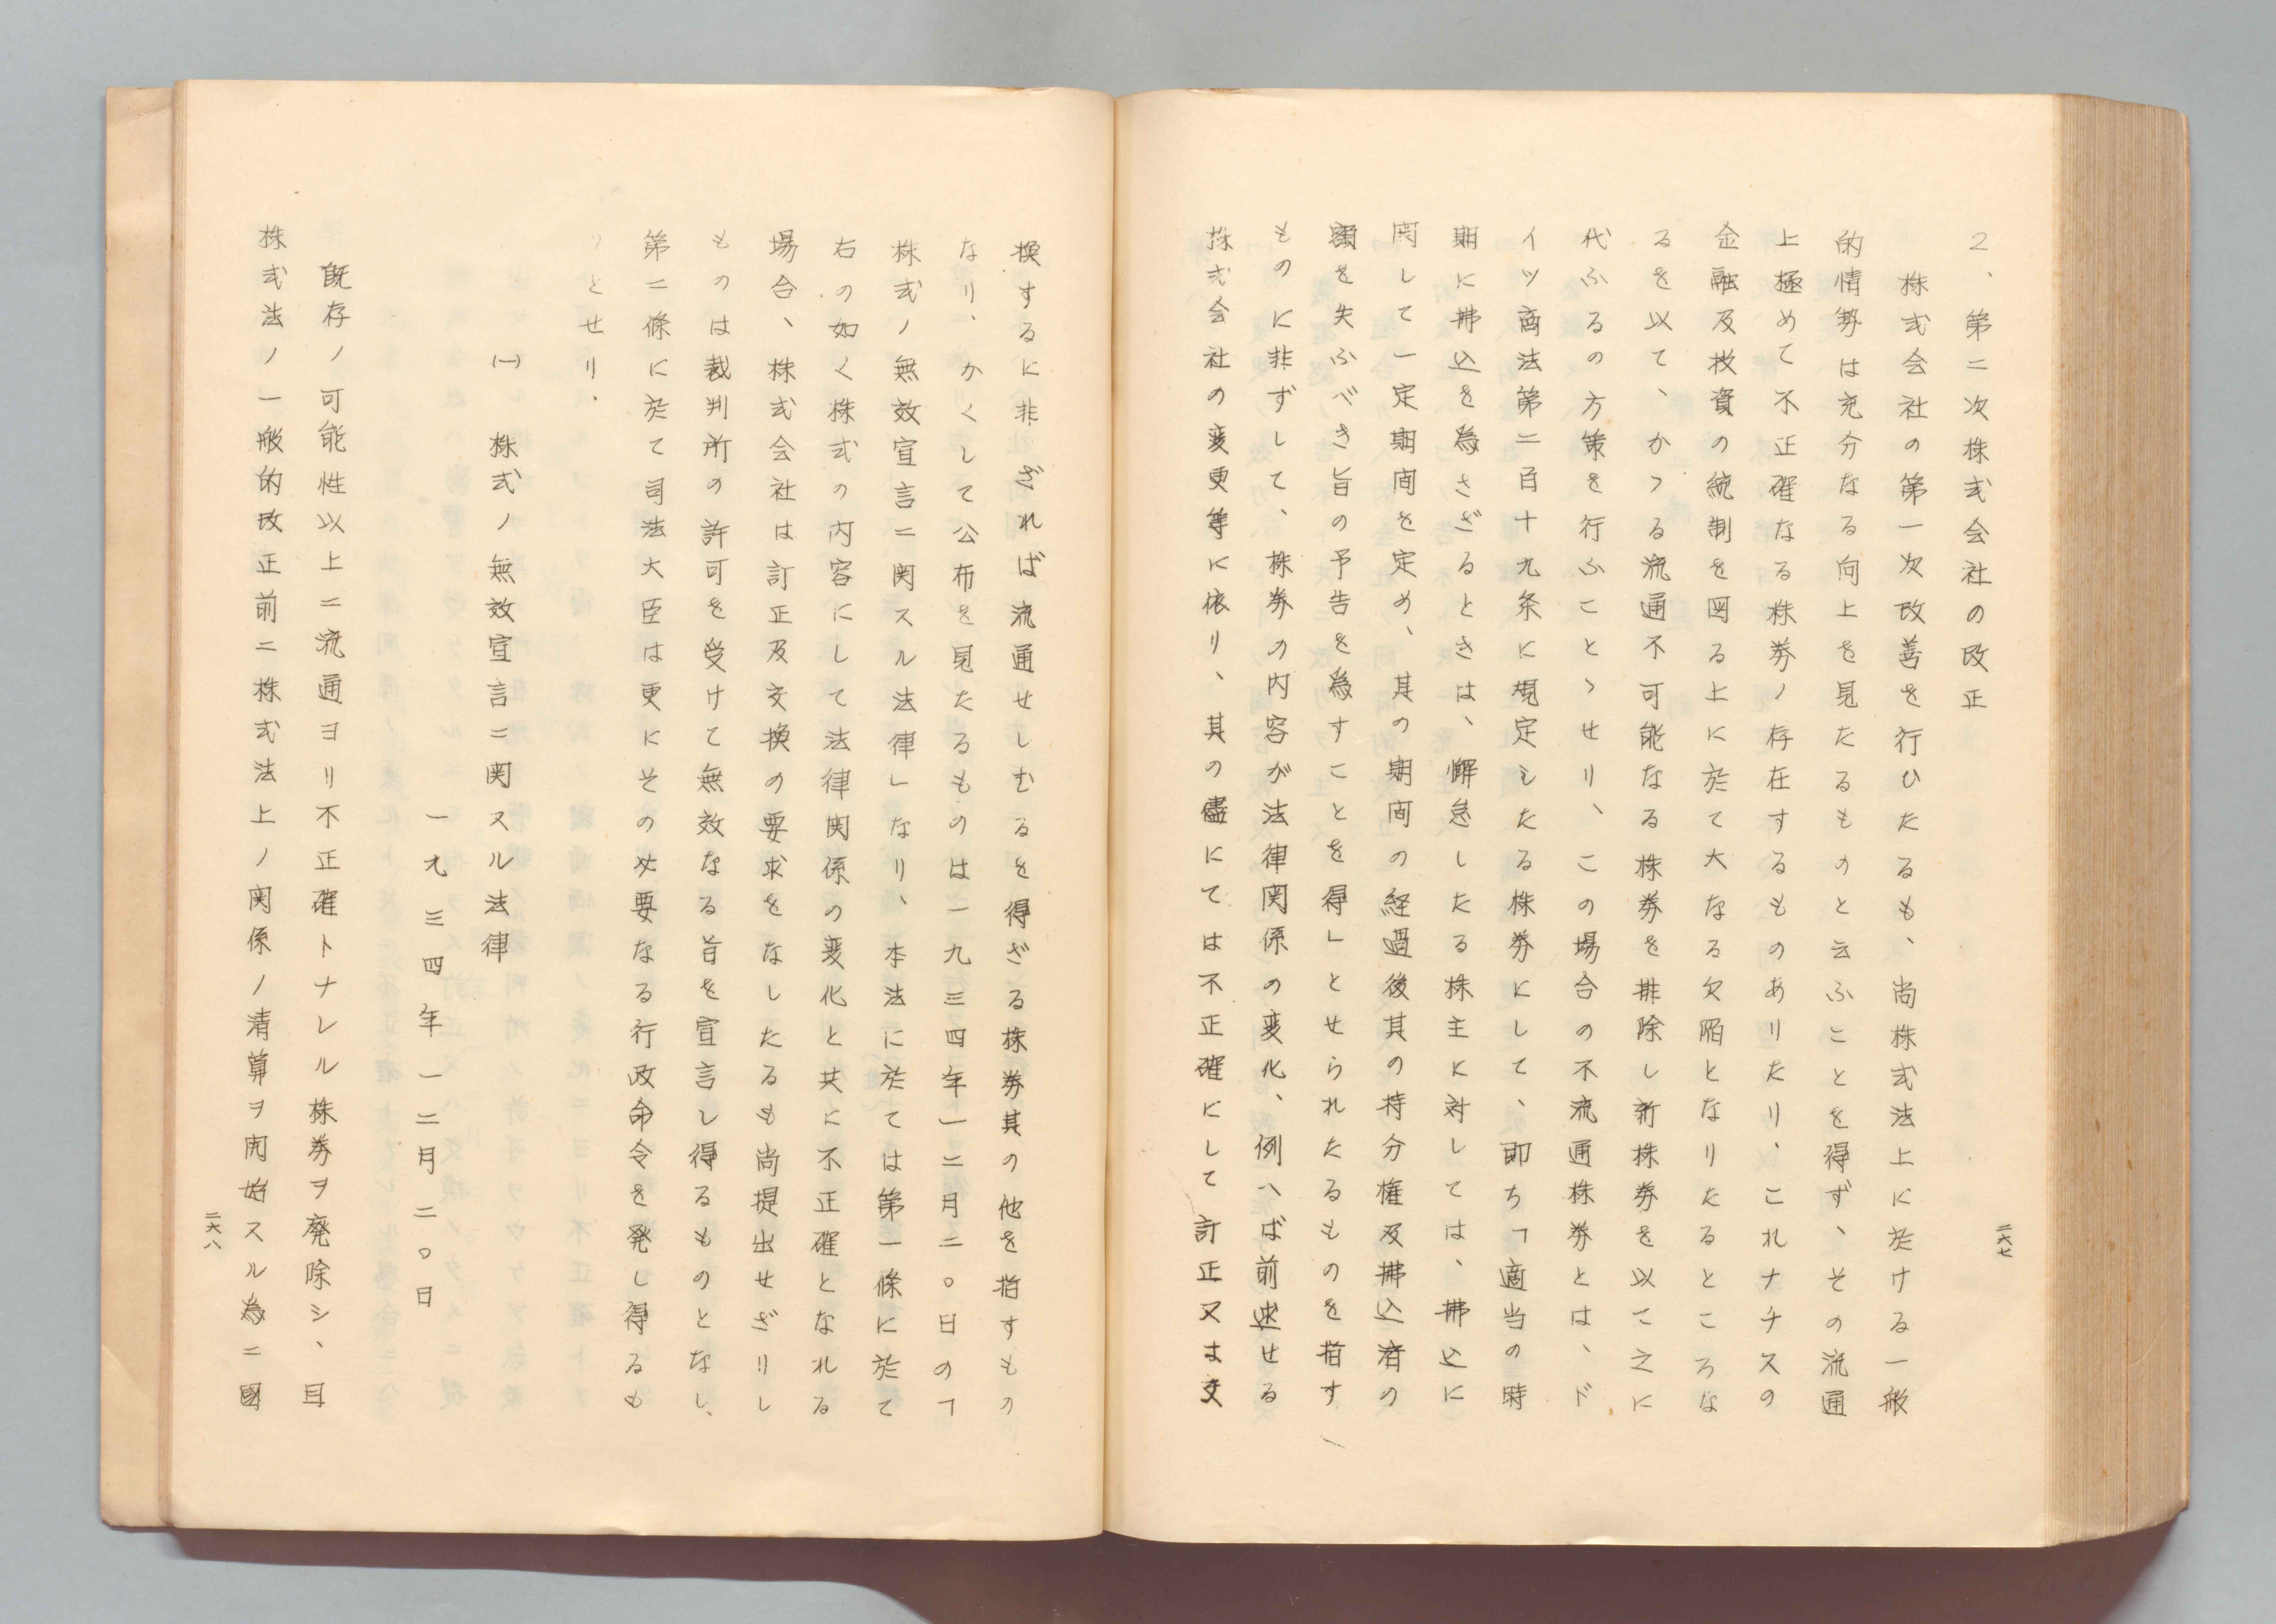 2、第二次株式会社の改正
株式会社の第一次改善を行ひたるも、尚株式法上に於ける一般
的情勢は充分なる向上を見たるものと云ふことを得ず、その流通
上極めて不正確なる株券ノ存在するものありたり、これナチスの
金融及投資の統制を図る上に於て大なる欠陥となりたるところな
るを以て、かゝる流通不可能なる株券を排除し新株券を以て之に
代ふるの方策を行ふことゝせり、この場合の不流通株券とは、ド
イツ商法第二百十九条に規定したる株券にして、即ち「適当の時
期に払込を為さざるときは、懈怠したる株主に対しては、払込に
関して一定期間を定め、其の期間の経過後其の持分権及払込済の
額を失ふべき旨の予告を為すことを得」とせられたるものを指す
ものに非ずして、株券の内容が法律関係の変化、例へば前述せる
株式会社の変更等に依り、其の儘にては不正確にして訂正又は交
二六七
換するに非ざれば流通せしむるを得ざる株券其の他を指すもの
なり、かくして公布を見たるものは一九三四年一二月二〇日の「
株式ノ無效宣言ニ関スル法律」なり、本法に於ては第一條に於て
右の如く株式の内容にして法律関係の変化と共に不正確となれる
場合、株式会社は訂正及交換の要求をなしたるも尚提出せざりし
ものは裁判所の許可を受けて無效なる旨を宣言し得るものとなし、
第二條に於て司法大臣は更にその必要なる行政命令を発し得るも
のとせり、
(一) 株式ノ無效宣言ニ関スル法律
一九三四年一二月二〇日
既存ノ可能性以上ニ流通ヨリ不正確トナレル株券ヲ廃除シ、且
株式法ノ一般的改正前ニ株式法上ノ関係ノ清算ヲ開始スル為ニ國
二六八